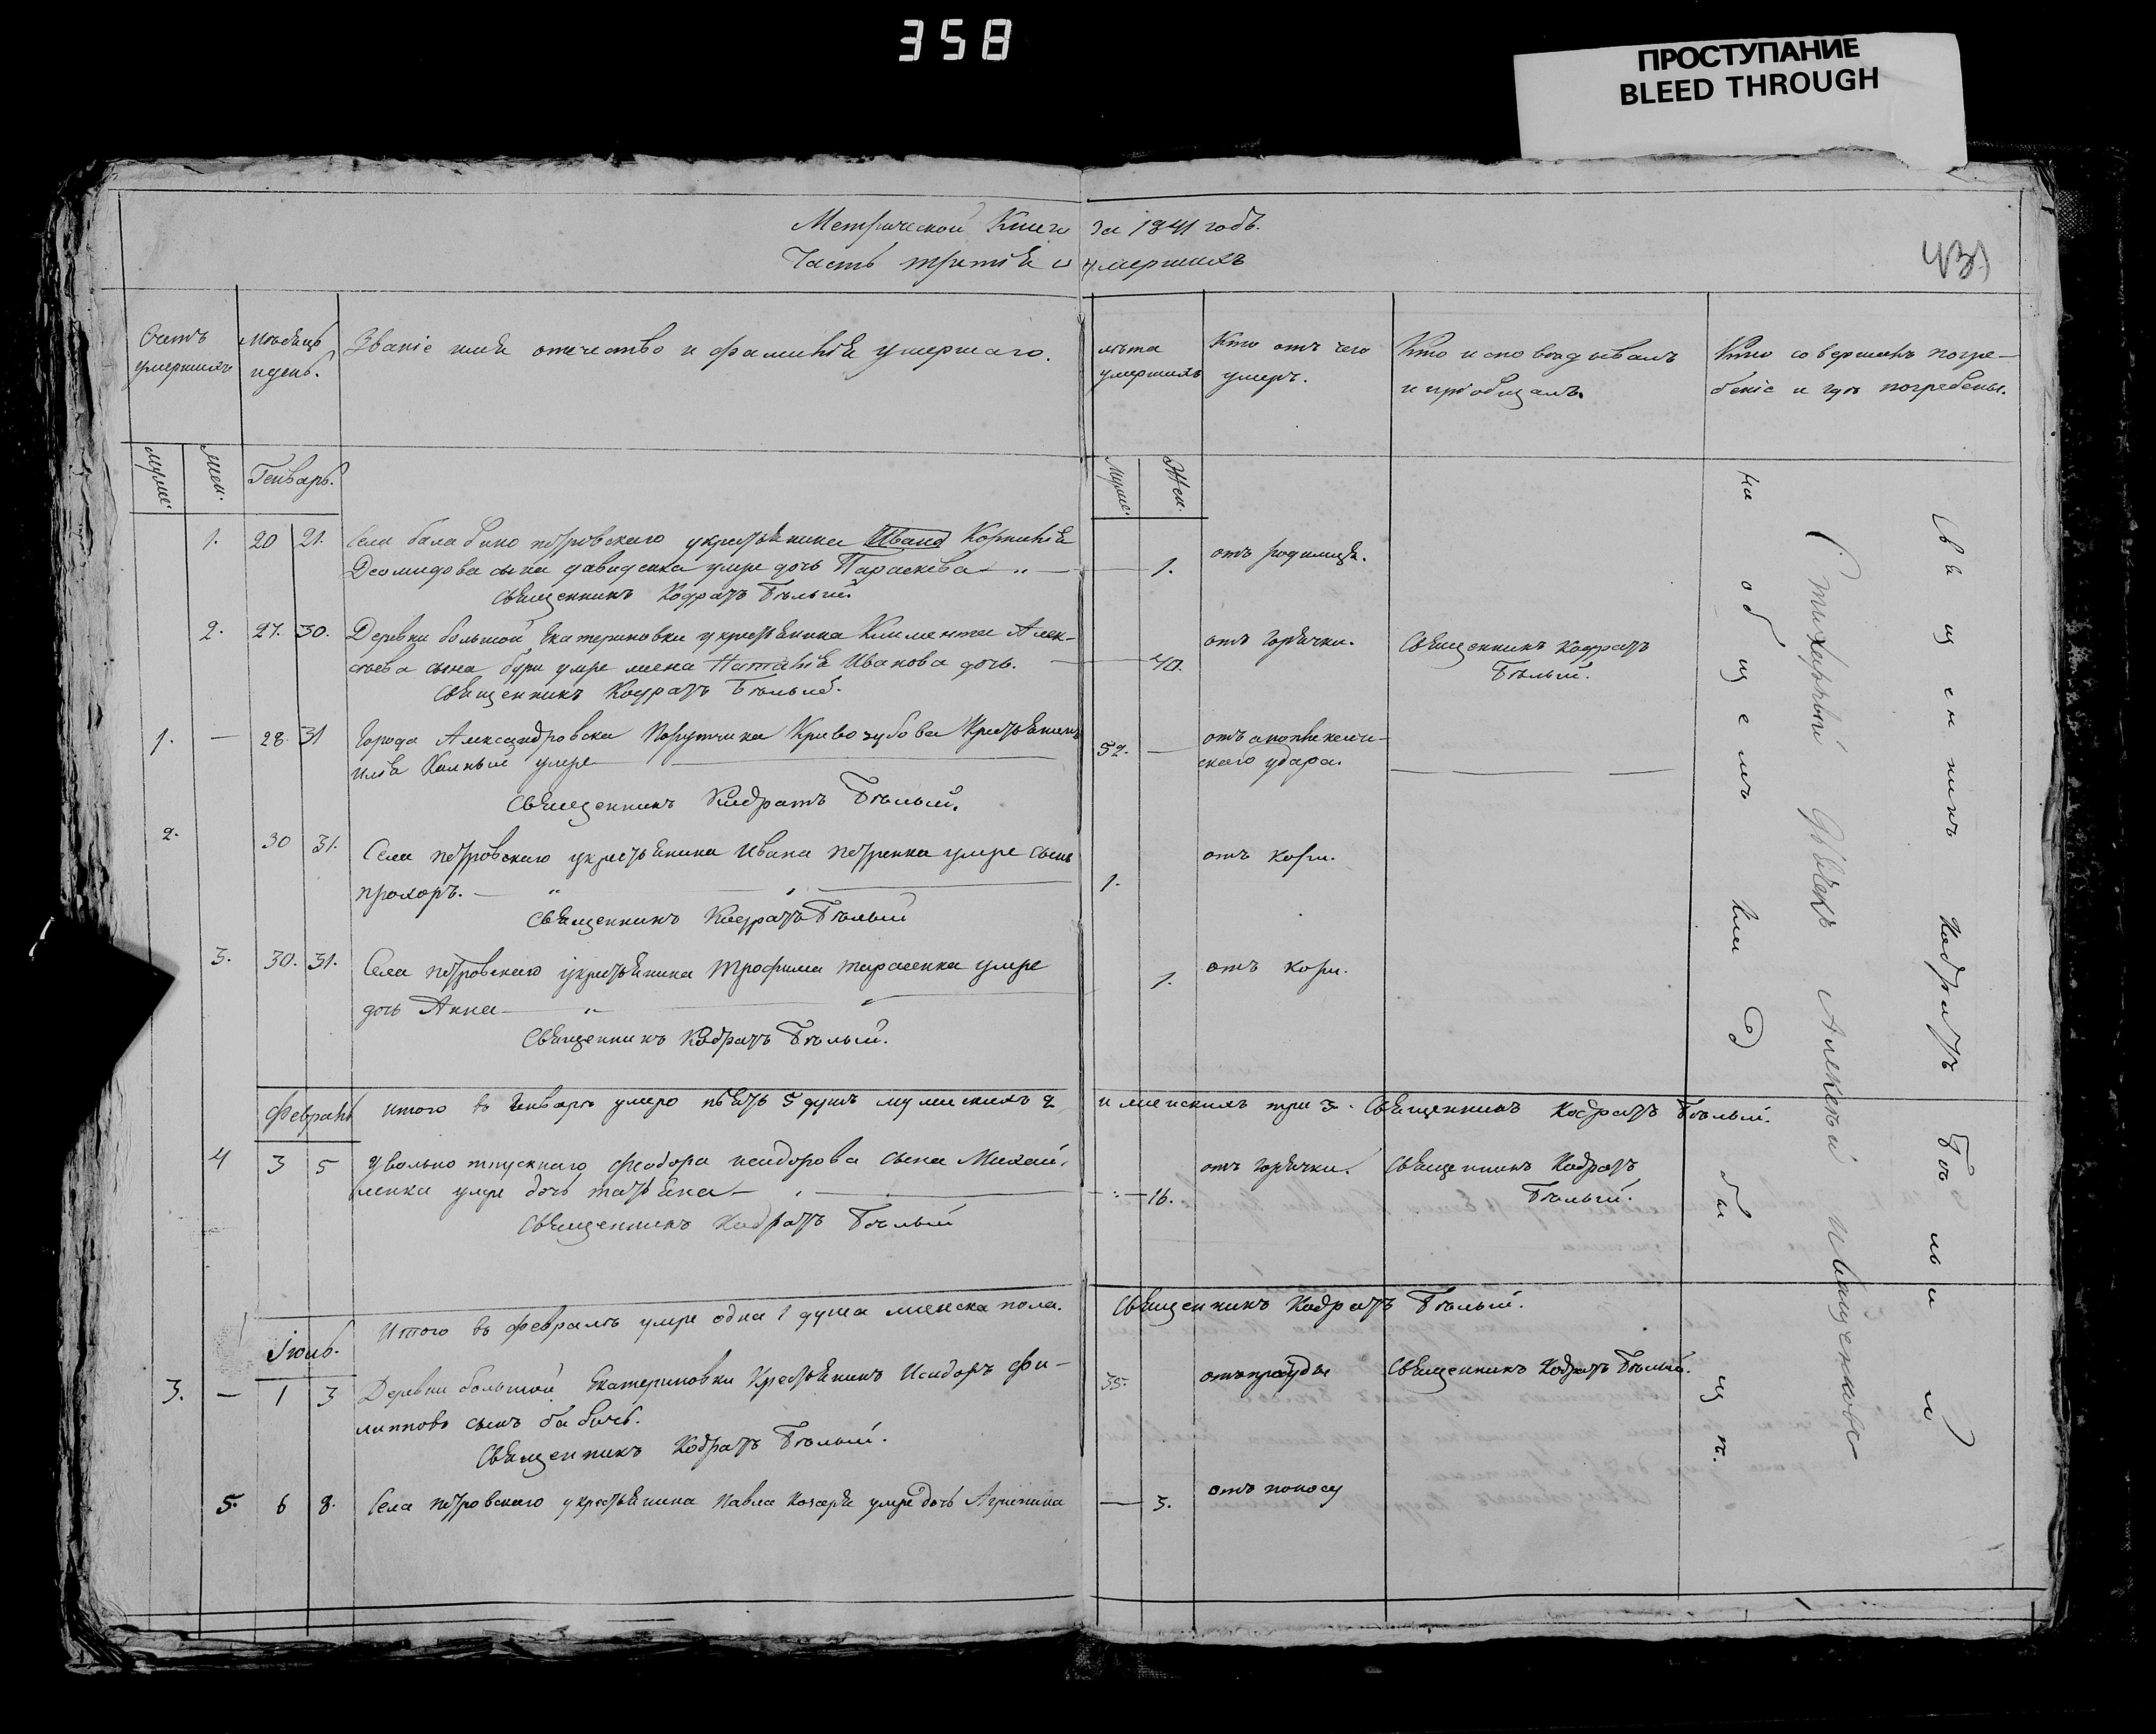 358
ПРОСТУПАНИЕ
BLEED THROUGH
Метрической Книги за 1841 годъ.
Часть третія о умершихъ
431
Счетъ умершихъ
Мѣсяцъ и день.
Званіе имя отечество и фамилія умершаго.
лѣта умершихъ
Кто отъ чего умеръ.
Кто исповѣдывалъ и пріобщалъ.
Кто совершалъ погребеніе и гдѣ погребены.
Муже.
Жен.
Генварь.
Муже.
Жен.
1. 20 21. Села балабино петровскаго у крестьянина Ивана Корнилія
Деомидова сына давиденка умре дочь Параскева 1. отъ родимца.
Священникъ Кодратъ Бѣлый.
2. 27. 30. Деревни большой Екатериновки у крестьянина Климента Алек-
сѣева сына бури умре жена Наталія Иванова дочь. 40. отъ горячки. Священникъ Кодратъ Бѣлый.
Священникъ Кодратъ Бѣлый.
1. — 28. 31 Города Александровска Порутчика Кривозубова Крестьянинъ
илья умре 52. — отъ апоплексическаго удара.
Священникъ Кодратъ Бѣлый.
2. 30 31. Села петровскаго у крестьянина Ивана петренка умре сынъ
прохоръ. 1. отъ кори.
Священникъ Кодратъ Бѣлый
3. 30. 31. Села петровскаго у крестьянина Трофима тарасенка умре
дочь Анна 1. отъ кори.
Священникъ Кодратъ Бѣлый.
итого въ Генварѣ умеро пять 5 душъ мужескихъ 2 и женскихъ три 3. Священникъ Кодратъ Бѣлый.
Февраль
4 3 5 У вольноотпускнаго Феодора исидорова сына Михай-
ленка умре дочь татьяна 16. отъ горячки. Священникъ Кодратъ Бѣлый.
Священникъ Кодратъ Бѣлый
Итого въ Февралѣ умре одна 1 душа женска пола. Священникъ Кодратъ Бѣлый.
Іюль.
3. — 1 3 Деревни большой Екатериновки Крестьянинъ Исидоръ Фи-
липповъ сынъ бабичь. 35. отъ простуды Священникъ Кодратъ Бѣлый.
Священникъ Кодратъ Бѣлый.
5. 6 8. Села петровскаго у крестьянина Павла умре дочь Агрипина — 3. отъ поносу
на общемъ кладбищѣ.
Стихарный Дьячекъ Алексѣй Иващенковъ
Священникъ Кодратъ Бѣлый